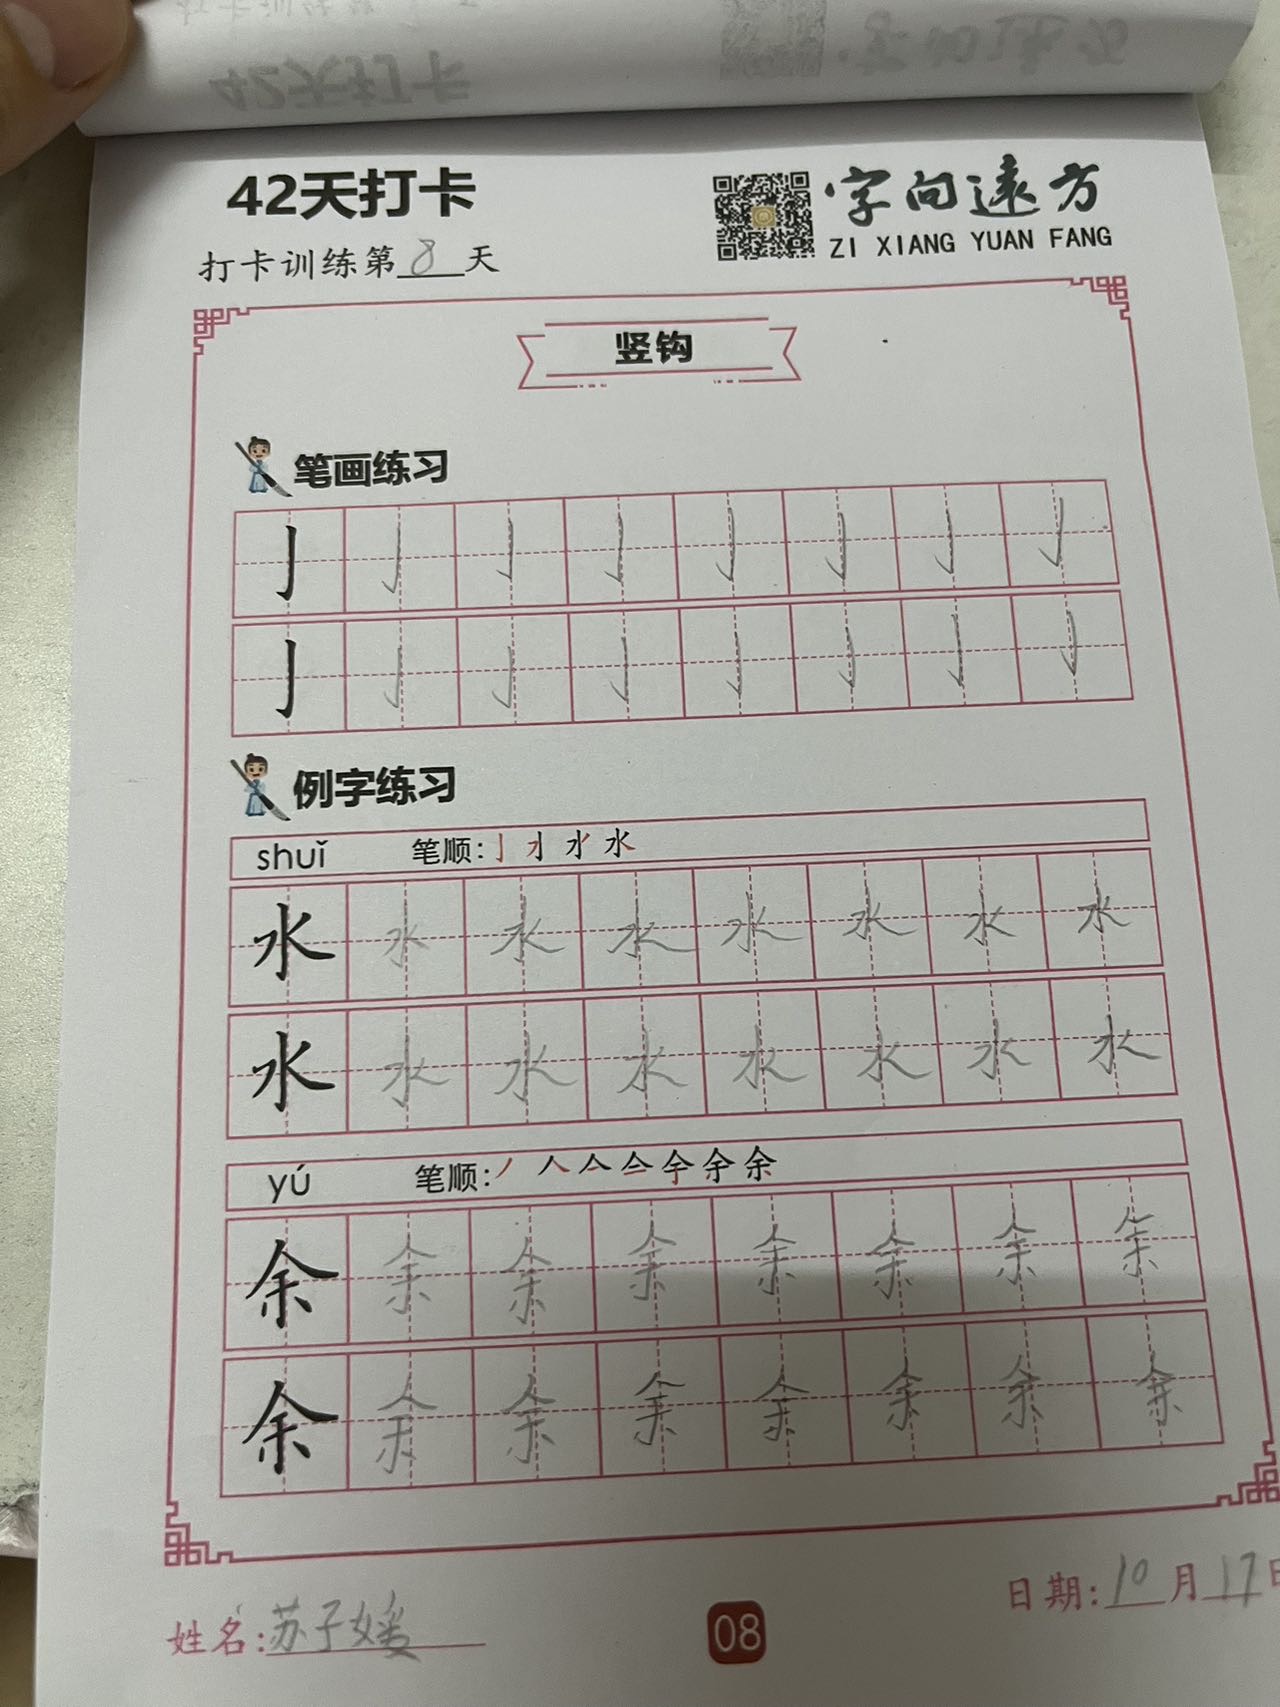 42天打卡
字向远方
ZI XIANG YUAN FANG
打卡训练第8天
竖钩
笔画练习
亅亅亅亅亅亅亅亅
亅亅亅亅亅亅亅亅
例字练习
shuǐ 笔顺: 水
水水水水水水水水
水水水水水水水水
yú 笔顺: 丿 人 亼 余
余余余余余余余余
余余余余余余余余
姓名:苏子媛
08
日期:10月17日